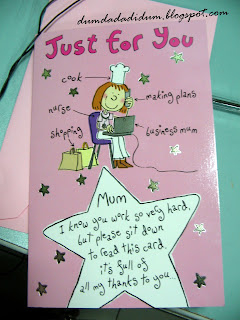 dumdadadidum.blogspot.com
Just for You
cook
making plans
nurse
shopping
business mum
Mum
I know you work so very hard,
but please sit down
to read this card,
it's full of
all my thanks to you...